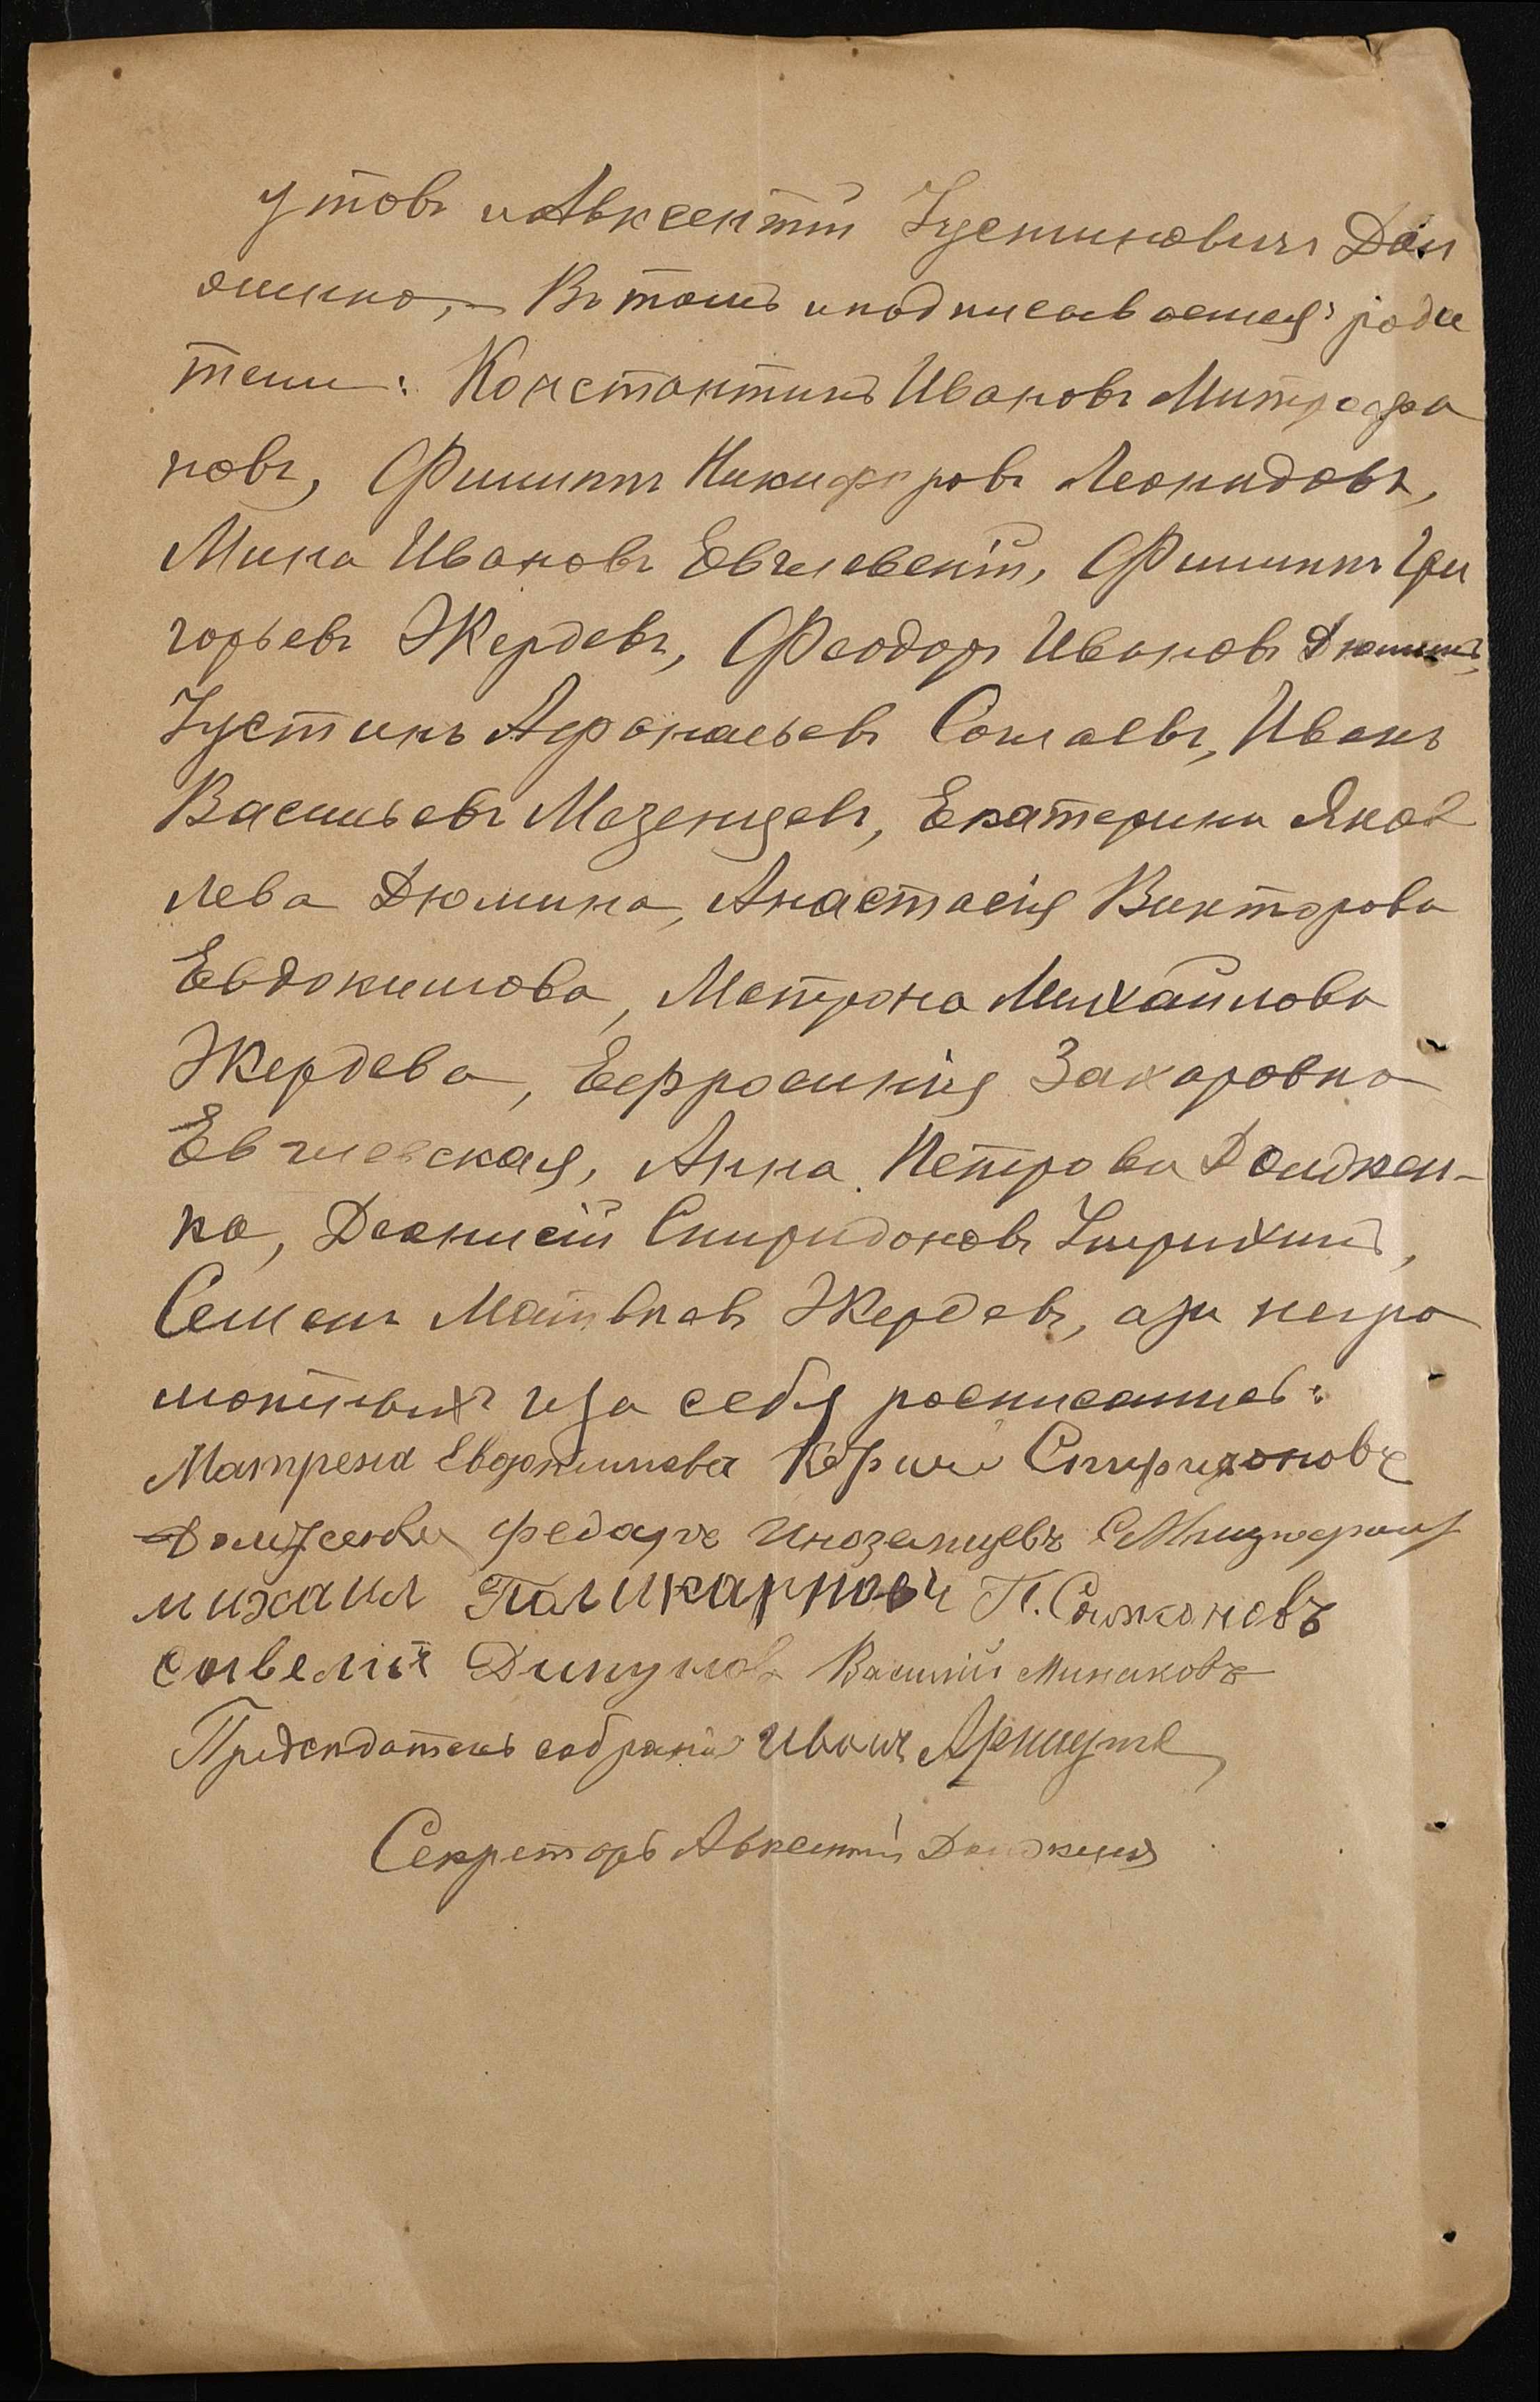 утовъ и Авксентій Іустиновичъ Дол
женко, – Въ томъ и подписываемся: роди
тели: Константинъ Ивановъ Митрофа
новъ, Филиппъ Никифоровъ Леонидовъ,
Мина Ивановъ Евчлевскій, Филиппъ Гри
горьевъ Жердевъ, Феодоръ Ивановъ Дюминъ,
Іустинъ Афонасьевъ Иванъ
Васильевъ Мезенцевъ, Екатерина Яков
лева Дюмина, Анастасія Викторова
Евдокимова, Матрона Михайлова
Жердева, Ефросинія Захаровна
Евчлевская, Анна Петрова Должен-
ко, Деонисій Спиридоновъ
Семенъ Матвѣевъ Жердевъ, а за негра
мотныхъ и за себя росписались:
Матрена Евдокимова Спиридоновъ
Долженко федаръ Иноземцевъ
михаил Паликарповъ П.
Савелій Дикуновъ Василій Минаковъ
Предсѣдатель собранія Иванъ
Секретарь Авксентій Долженко